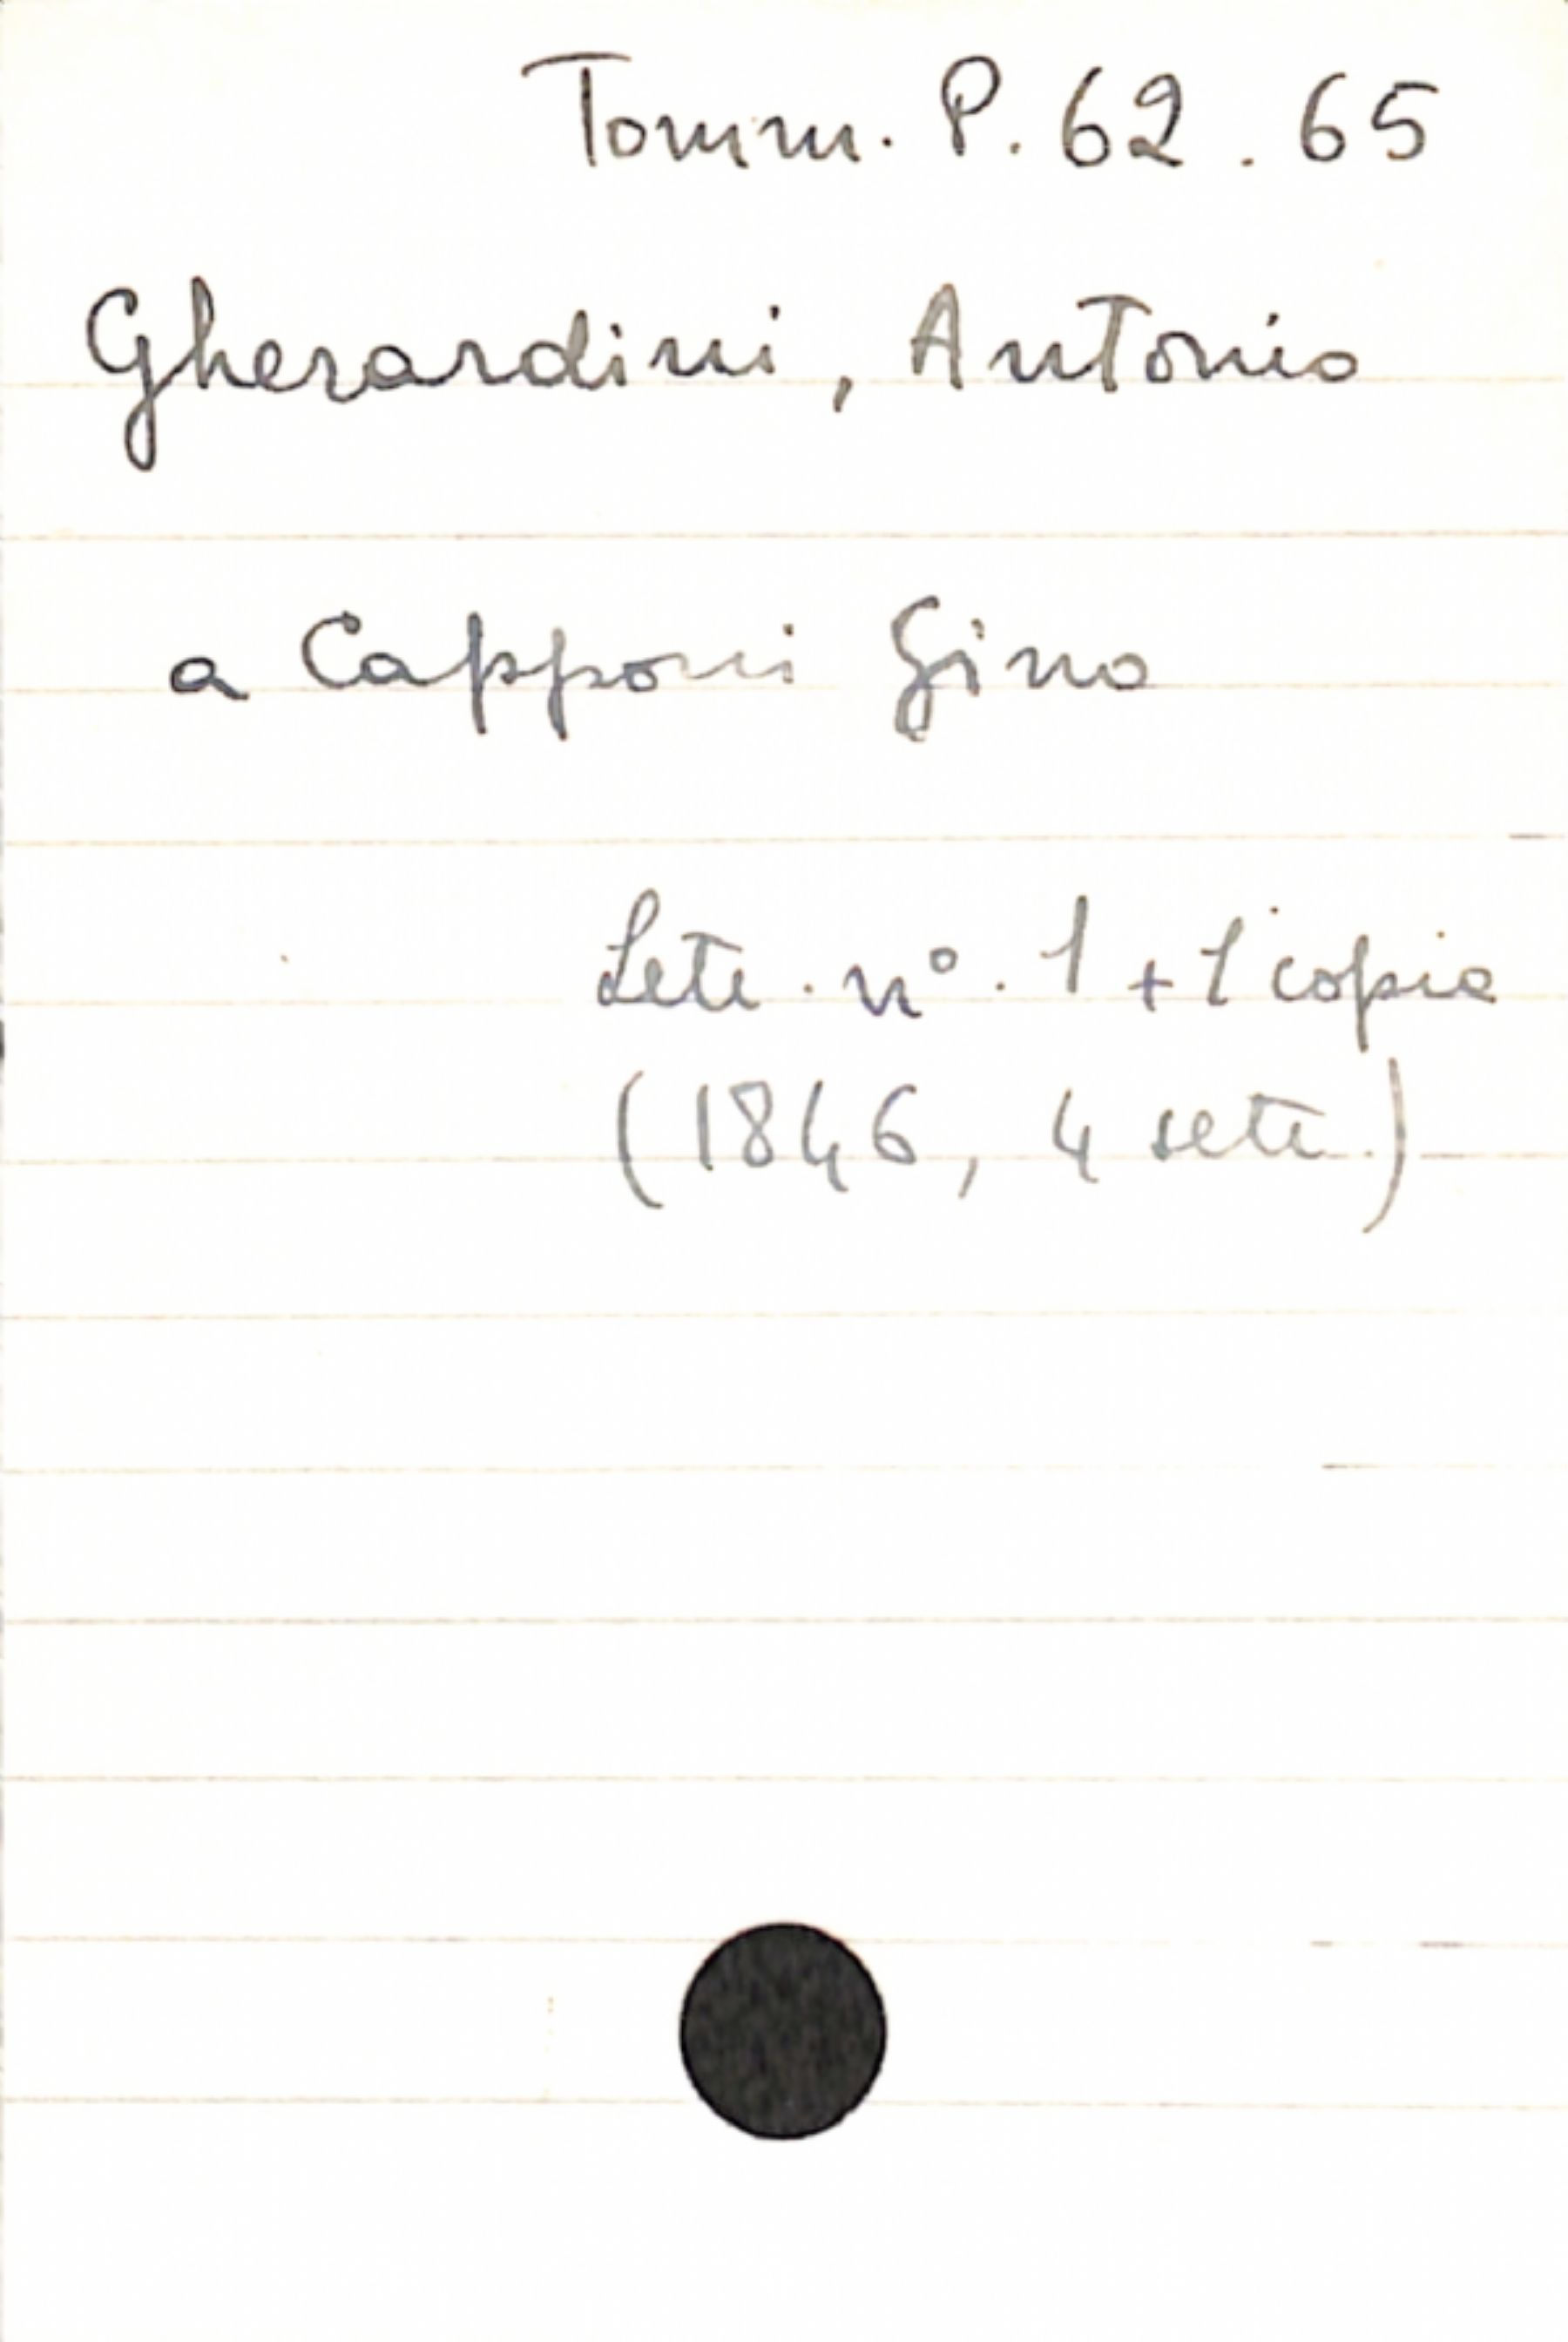 Tomm. P. 62. 65
Gherardini, Antonio
a Capponi Gino
Lett. n°. 1 + 1 copia
(1846, 4 sett.)